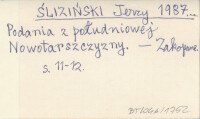 ŚLIZIŃSKI Jerzy 1987...
Podania z południowej
Nowotarszczyzny. — Zakopane
s. 11-12.